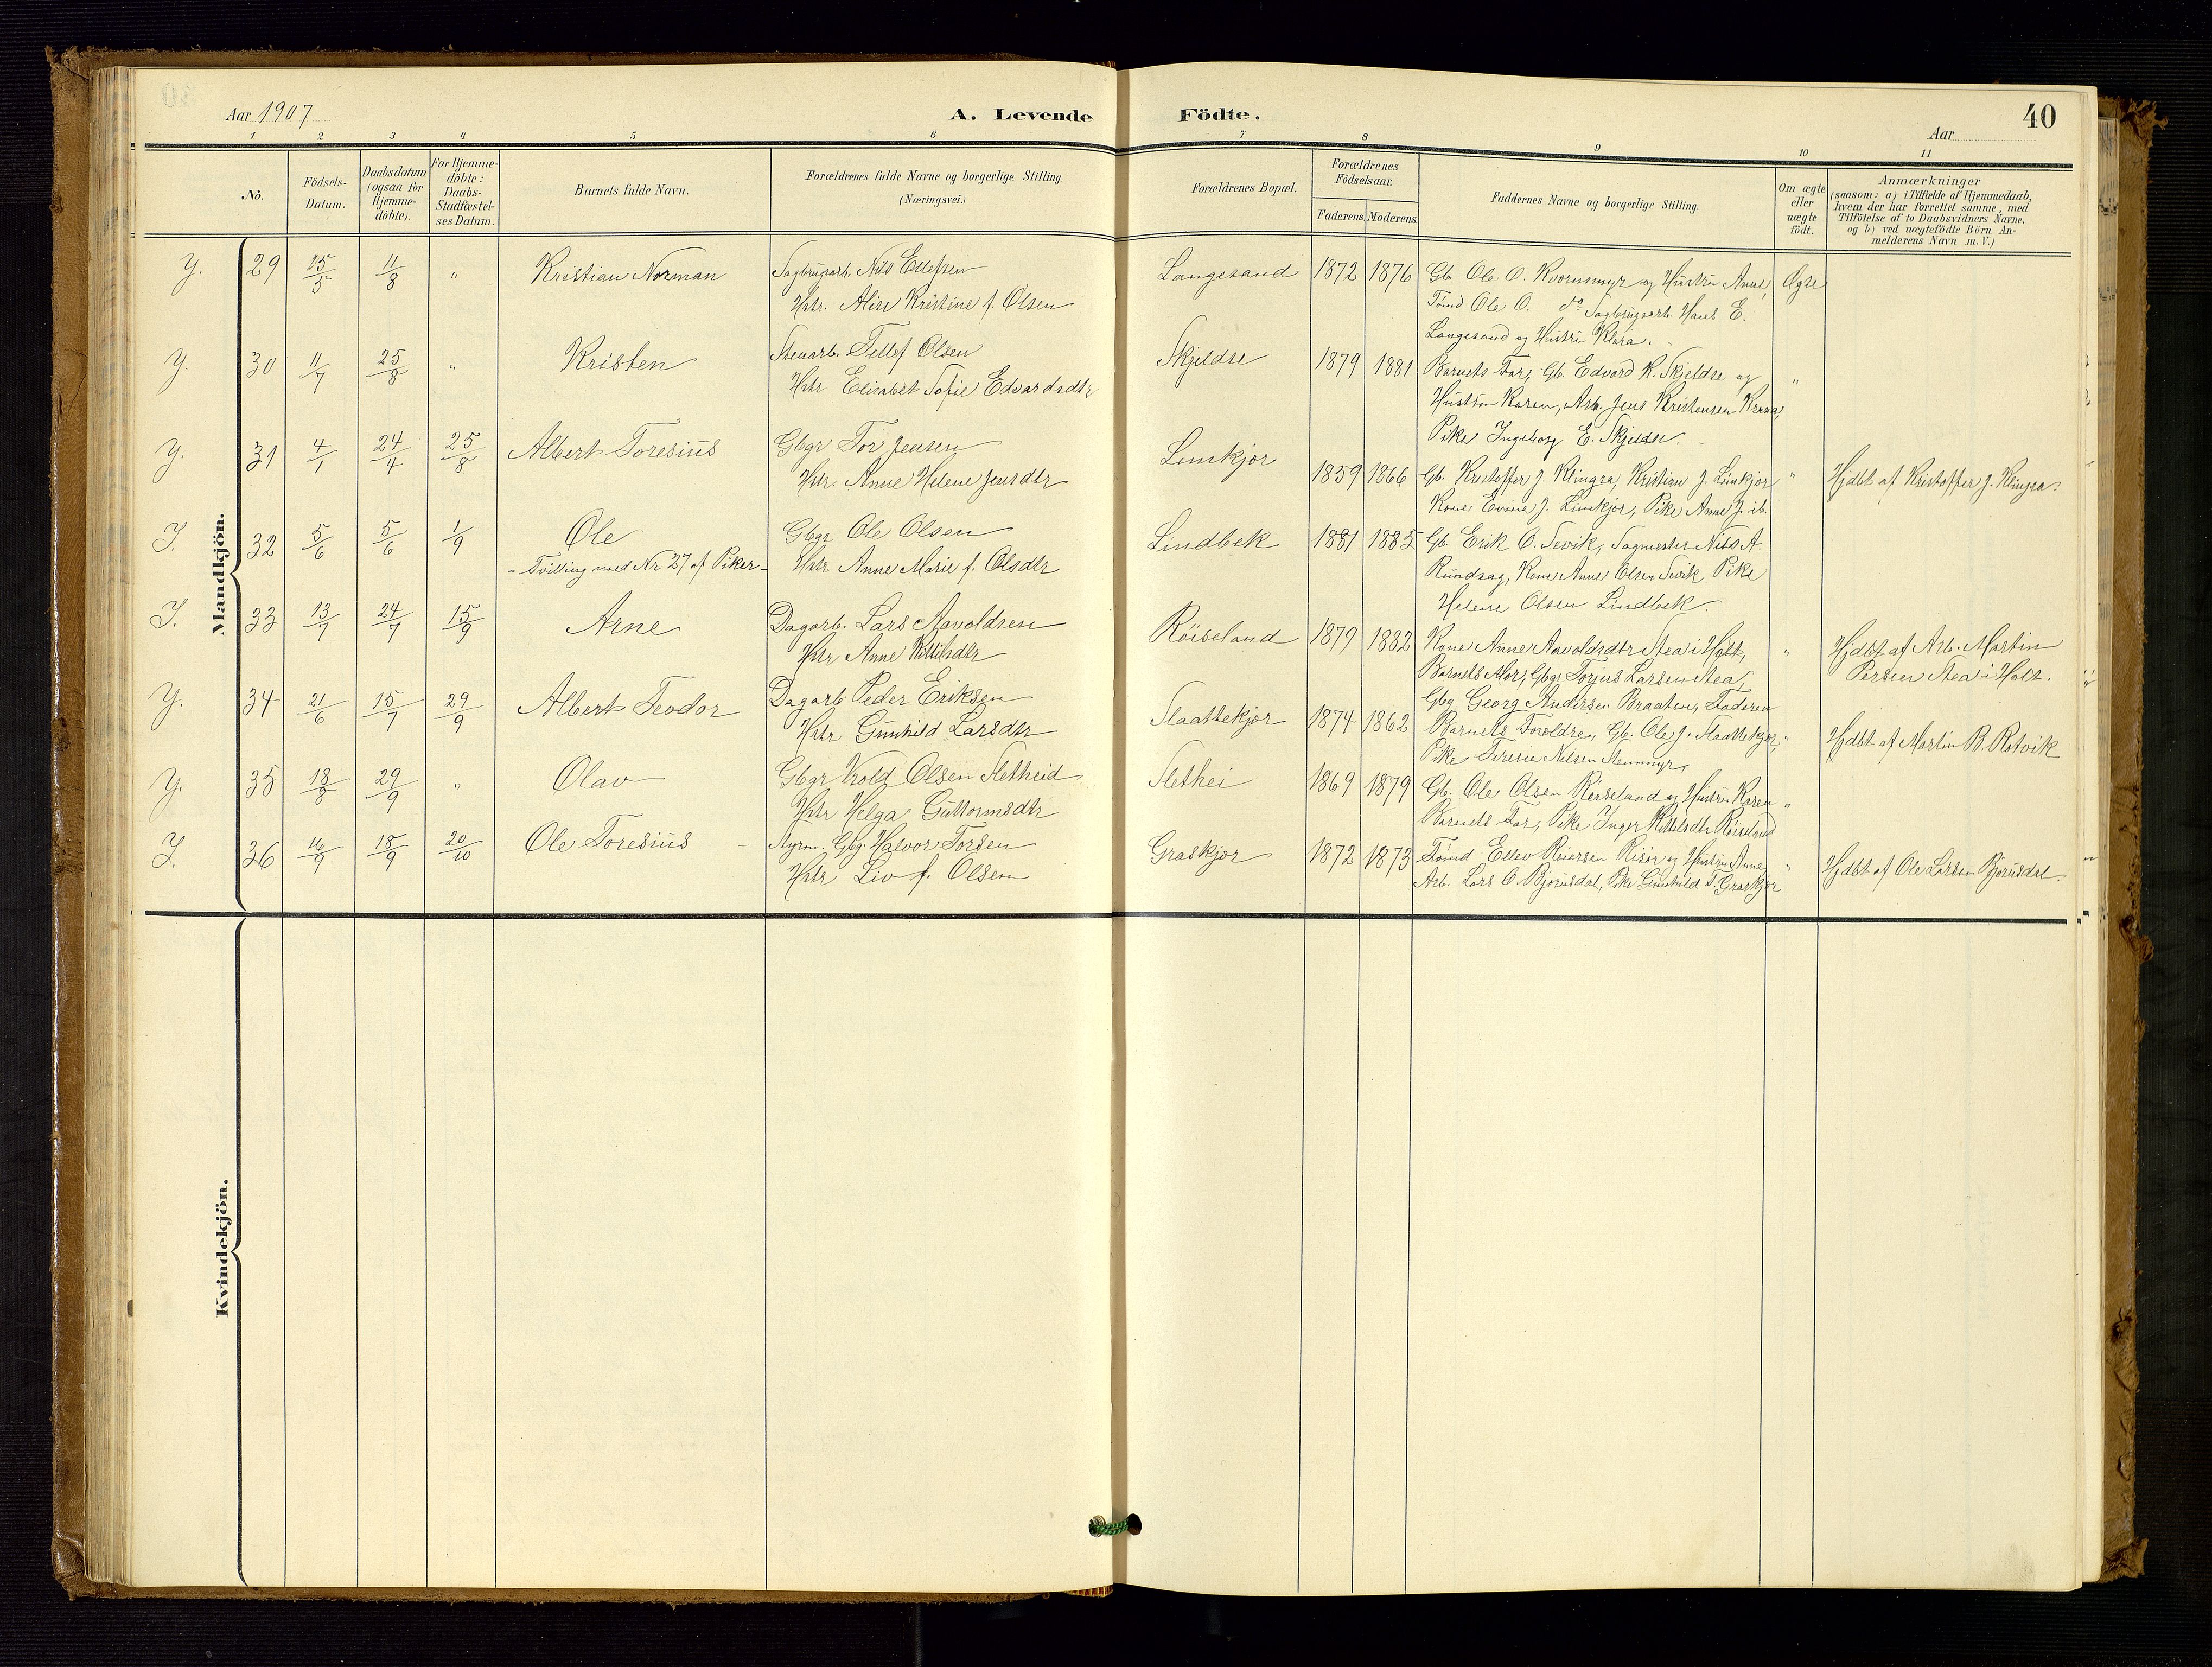 Aar 1907
A. Levende Födte.
40
Aar
1 2 3 4 5 6 7 8 9 10 11
No.
Födsels-Datum.
Daabsdatum (ogsaa for Hjemme-döbte).
For Hjemme-döbte: Daabs-Stadfæstel-ses Datum.
Barnets fulde Navn.
Forældrenes fulde Navne og borgerlige Stilling.
(Næringsvei.)
Forældrenes Bopæl.
Forældrenes Födselsaar.
Faderens. Moderens.
Faddernes Navne og borgerlige Stilling.
Om ægte eller uægte födt.
Anmærkninger
(saasom: a) i Tilfælde af Hjemmedaab,
hvem der har forrettet samme, med
Tilföielse af to Daabsvidners Navne,
og b) ved uægtefödte Börn An-
melderens Navn m. V.)
Mandkjön.
Y. 29 15/5 11/8 " Kristian Norman
Sagbrugsarb. Nils Ellefsen
Hstr. Alise Kristine f. Olsen
Langesand 1872 1876
Gb. Ole O. Kvornmyr og Hustru Anne,
Tömd Ole O. do Sagbrugsarb. Hans E.
Langesand og Hustru Klara.
Ægte
Y. 30 11/7 25/8 " Kristen
Stenarb. Tellef Olsen
Hstr Elisabet Sofie Edvardsdtr
Skjeldse 1879 1881
Barnets Far, Gb. Edvard K. Skjeldse og
Hustru Karen, Arb. Jens Kristensen
Pike Ingeborg E. Skjeldse.
"
Y. 31 4/1 24/4 25/8 Albert Toresius
Gbgr Tor Jensen
Hstr. Anne Helene Jensdtr
Limkjør 1859 1866
Gb. Kristoffer J. Klingra, Kristian J. Limkjør
Kone Evine J. Limkjør, Pike Anne J. ib.
"
Hjdbt af Kristoffer J. Klingra.
I. 32 5/6 5/6 1/9 Ole
- Tvilling med Nr 27 af Piker -
Gbgr Ole Olsen
Hstr. Anne Marie f. Olsdtr
Lindbek 1881 1885
Gb. Erik O. Sevik, Sagmester Nils A.
Rundsag, Kone Anne Olsen Sevik, Pike
Helene Olsen Lindbek.
I. 33 13/7 24/7 15/9 Arne
Dagarb. Lars Aavoldsen
Hstr Anne Kittilsdtr
Röiseland 1879 1882
Kone Anne Aavoldsdtr Stea i Holt,
Barnets Mor, Gbgr Torjus Larsen Stea,
Gbg Georg Andersen Braaten, Faderen
"
Hjdbt af Arb. Martin
Persen Stea i Holt.
Y. 34 21/6 15/7 29/9 Albert Teodor
Dagarb. Peder Eriksen
Hstr Gunhild Larsdtr
Slaattekjør 1874 1862
Barnets Foreldre, Gb. Ole J. Slaattekjør,
Pike Teresie Nilsen Stenmyr,
"
Hjdbt af Martin B. Rotvik
Y. 35 18/8 29/9 " Olav
Gbgr Vrold Olsen Sletheid
Hstr Helga Guttormsdtr
Slethei 1869 1879
Gb. Ole Olsen Röiseland og Hustru Karen
Barnets Far, Pike Inger Kittelsdtr Röiseland
"
I. 36 16/9 18/9 20/10 Ole Toresius
Styrm. Gbg. Halvor Torsen
Hstr Liv f. Olsen
Graskjør 1872 1873
Tömd Ellev Reiersen Risør og Hustru Anne
Arb. Lars O. Bjørnsdal, Pike Gunhild T. Graskjør
"
Hjdbt af Ole Larsen Bjørnsdal.
Kvindekjön.